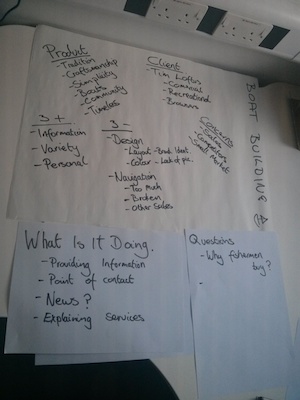 Product
-Tradition
-Craftsmanship
-Simplicity
-Boats
-Community
-Timeless
Client
-Tim Loftus
-Comercial
-Recreational
-Browsers
Concerns
-Sales
-Competition
-Small Market
BOAT BUILDING
3 +
-Information
-Variety
-Personal
3 -
-Design
-Layout -Brand. Ident.
-Color - Lack of pic.
-Navigation
-Too Much
-Broken
-Other Sides
What Is It Doing.
-Providing Information
-Point of contact
-News?
-Explaining Services
Questions
-Why fishermen
buy?
-